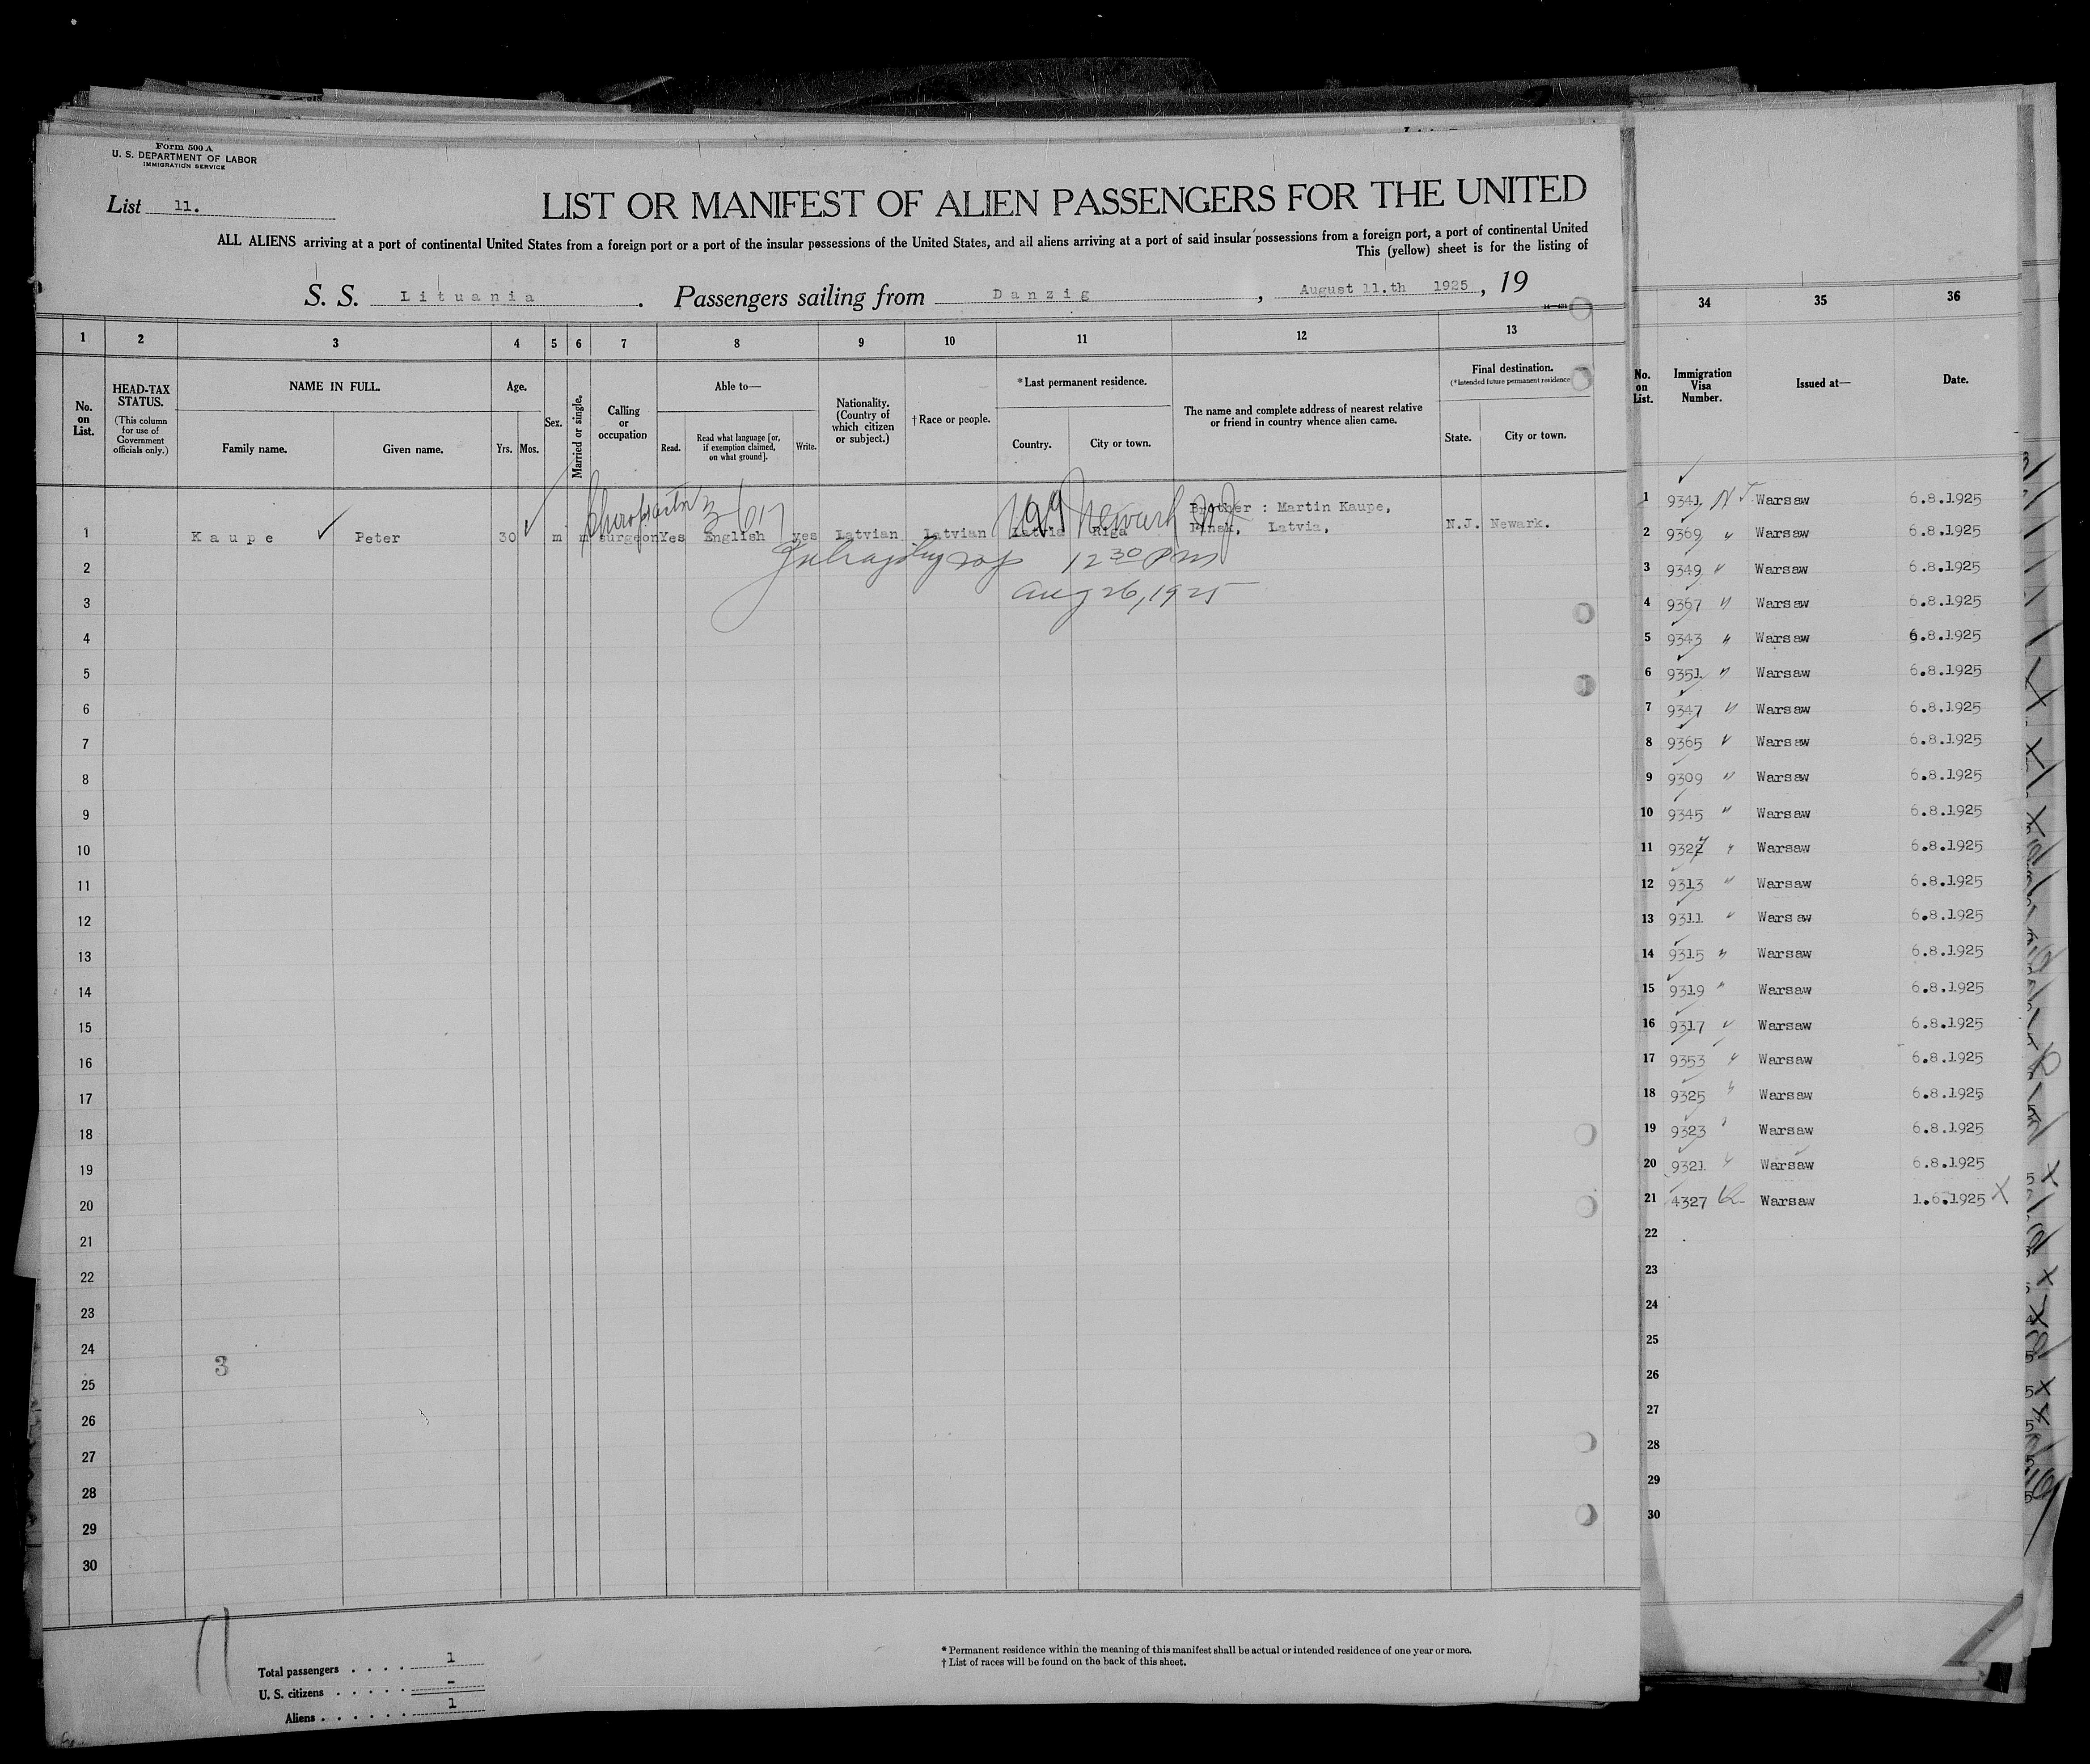 Form 500 A
U. S. DEPARTMENT OF LABOR
IMMIGRATION SERVICE
List 11.
LIST OR MANIFEST OF ALIEN PASSENGERS FOR THE UNITED
ALL ALIENS arriving at a port of continental United States from a foreign port or a port of the insular possessions of the United States, and all aliens arriving at a port of said insular possessions from a foreign port, a port of continental United
This (yellow) sheet is for the listing of
S. S. Lituania. Passengers sailing from Danzig, August 11.th 1925, 19
1 2 3 4 5 6 7 8 9 10 11 12 13
No. on List.
HEAD-TAX STATUS.
(This column for use of Government officials only.)
NAME IN FULL.
Family name. Given name.
Age.
Yrs. Mos.
Sex.
Married or single.
Calling or occupation
Able to—
Read. Read what language [or, if exemption claimed, on what ground]. Write.
Nationality. (Country of which citizen or subject.)
† Race or people.
*Last permanent residence.
Country. City or town.
The name and complete address of nearest relative or friend in country whence alien came.
Final destination.
(*Intended future permanent residence
State. City or town.
Chiropractor 3/617 Newark NJ
Brother : Martin Kaupe,
1 Kaupe Peter 30 m m surgeon Yes English yes Latvian Latvian Latvia Riga Pinsk, Latvia, N.J. Newark.
12 30 PM
Aug 26, 1925
2
3
4
5
6
7
8
9
10
11
12
13
14
15
16
17
18
19
20
21
22
23
24
3
25
26
27
28
29
30
11
Total passengers . . . . 1
U. S. citizens . . . . . -
Aliens . . . . . . 1
* Permanent residence within the meaning of this manifest shall be actual or intended residence of one year or more.
† List of races will be found on the back of this sheet.
34 35 36
No. on List. Immigration Visa Number. Issued at— Date.
1 9341 Warsaw 6.8.1925
2 9369 " Warsaw 6.8.1925
3 9349 " Warsaw 6.8.1925
4 9367 " Warsaw 6.8.1925
5 9343 " Warsaw 6.8.1925
6 9351 " Warsaw 6.8.1925
7 9347 " Warsaw 6.8.1925
8 9365 " Warsaw 6.8.1925
9 9309 " Warsaw 6.8.1925
10 9345 " Warsaw 6.8.1925
11 9327 " Warsaw 6.8.1925
12 9313 " Warsaw 6.8.1925
13 9311 " Warsaw 6.8.1925
14 9315 " Warsaw 6.8.1925
15 9319 " Warsaw 6.8.1925
16 9317 " Warsaw 6.8.1925
17 9353 " Warsaw 6.8.1925
18 9325 " Warsaw 6.8.1925
19 9323 " Warsaw 6.8.1925
20 9321 " Warsaw 6.8.1925
21 4327 Warsaw 1.6.1925 X
22
23
24
25
26
27
28
29
30